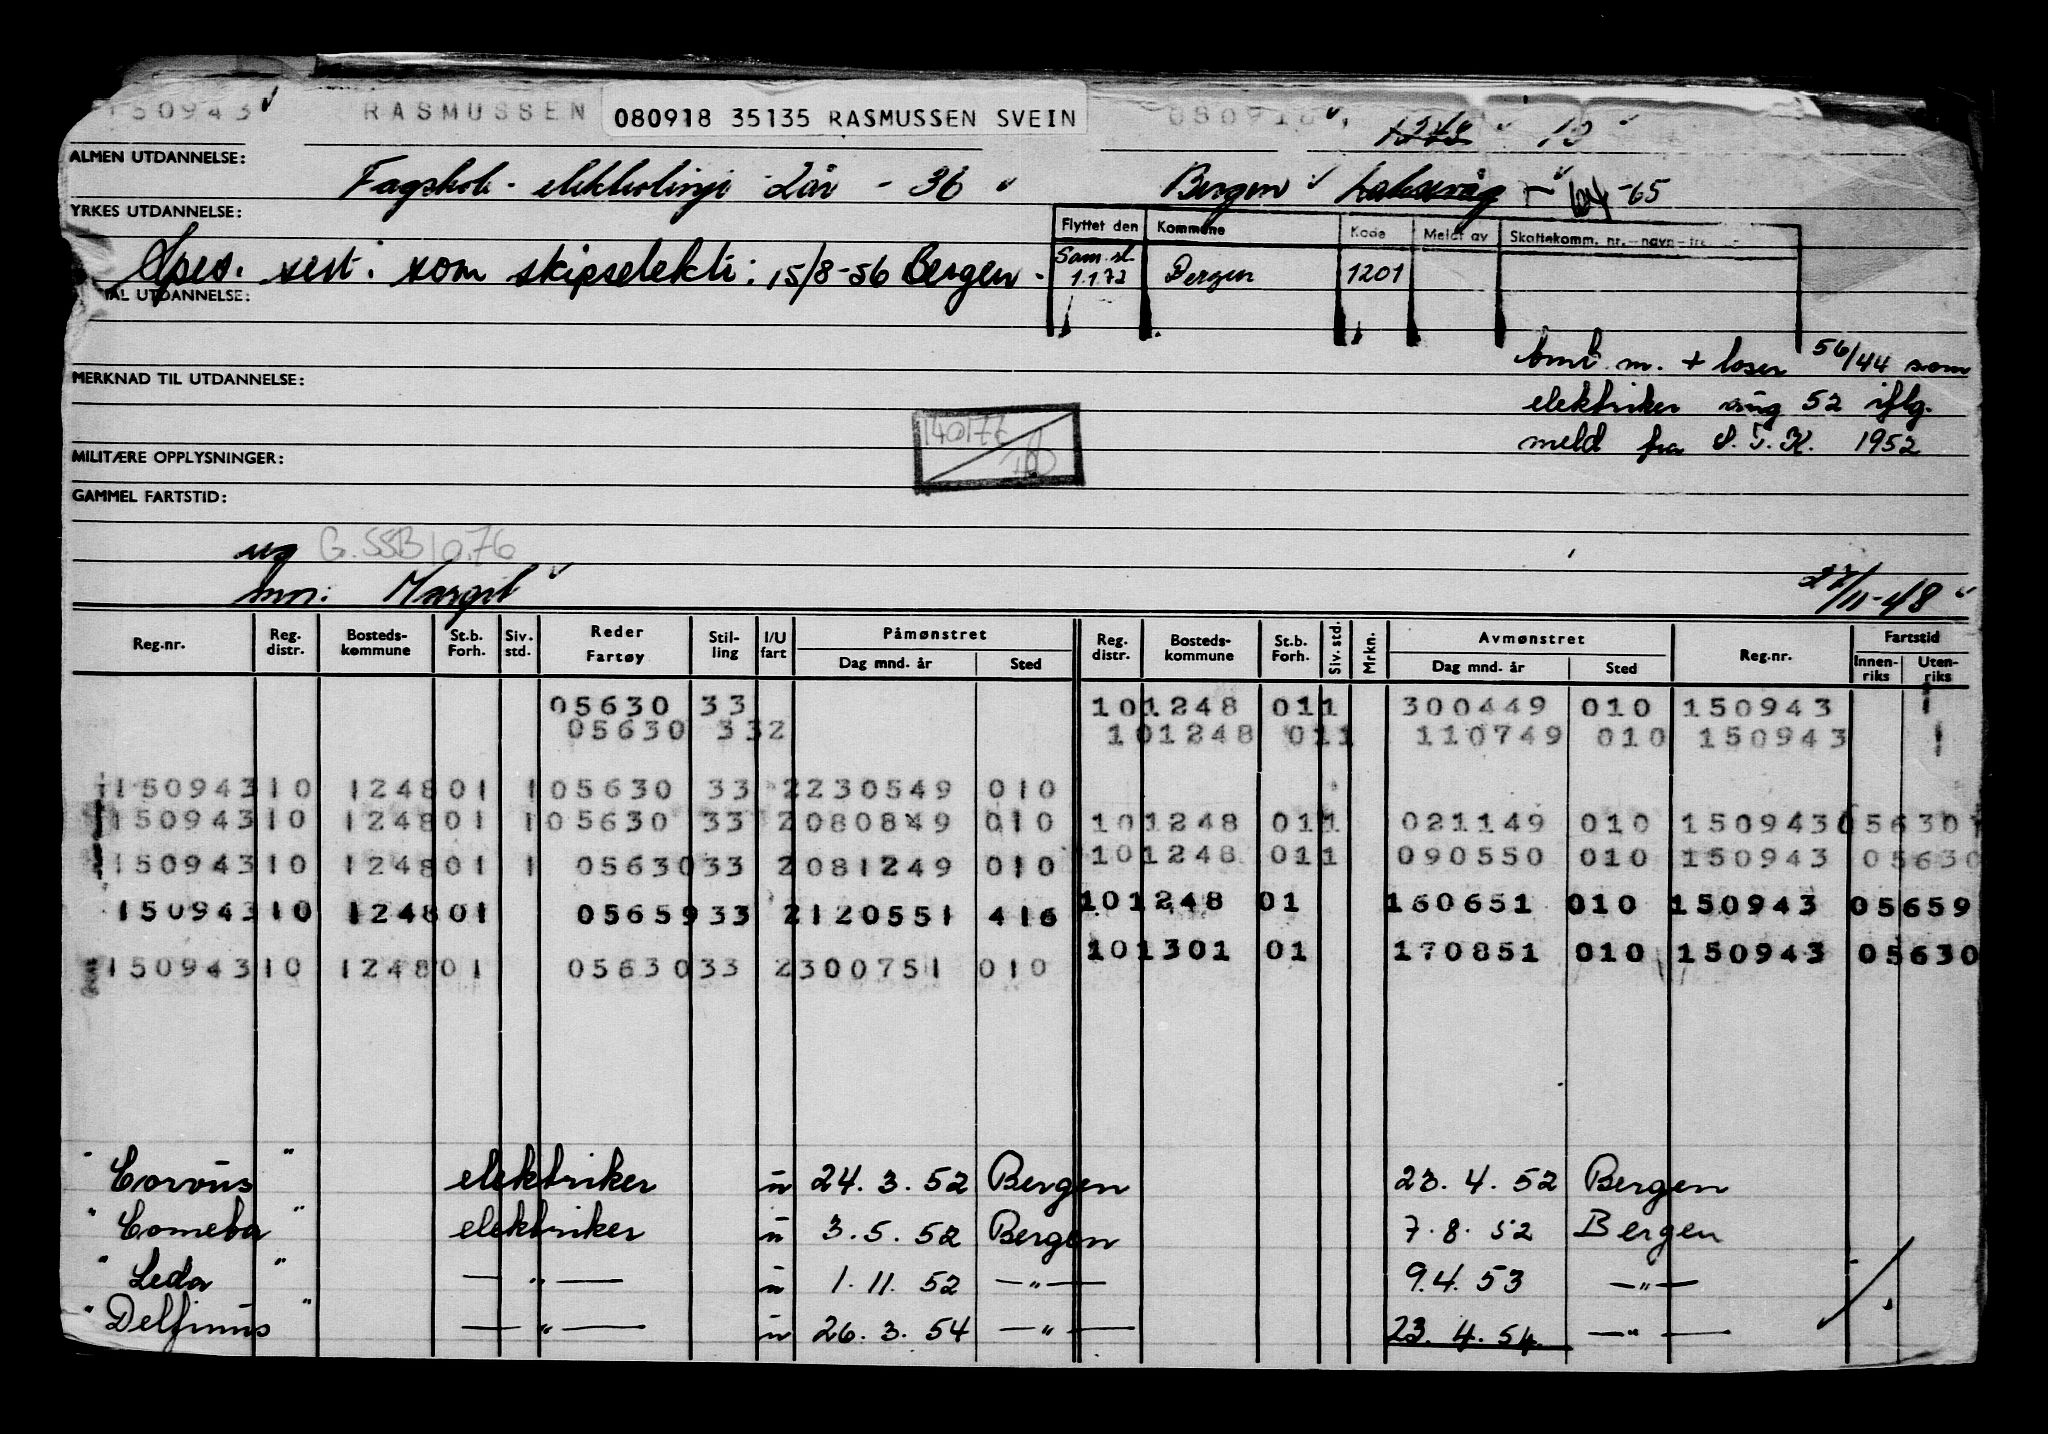 150943 RASMUSSEN 080918 35135 RASMUSSEN SVEIN 080918
1248 10
ALMEN UTDANNELSE:
Fagskole - elektrolinje 2 år - 36 Bergen Laksevåg - 64 -65
YRKES UTDANNELSE:
Flyttet den Kommune Kode Meldt av Skattekomm. nr. - navn -
Spes. sert. som skipselektr: 15/8-56 Bergen.
Sam.sl. 1.1.72 Bergen 1201
AL UTDANNELSE:
m. + loser 56/44 som
MERKNAD TIL UTDANNELSE:
elektriker 52 iflg.
140177
meld fra S.T.K. 1952
MILITÆRE OPPLYSNINGER:
GAMMEL FARTSTID:
G. SSB 10.76
Margit 27/11-48
Reg.nr. Reg. distr. Bosteds- kommune St.b. Forh. Siv. std. Reder Fartøy Stil- ling I/U fart Påmønstret Dag mnd. år Sted Reg. distr. Bosteds- kommune St.b. Forh. Siv. std. Mrkn. Avmønstret Dag mnd. år Sted Reg.nr. Fartstid Innen- riks Uten- riks
05630 33 101248 011 300449 010 150943
05630 332 101248 011 110749 010 150943
150943 10 124801 1 05630 33 2230549 010
150943 10 124801 1 05630 33 2080849 010 101248 011 021149 010 150943 05630
150943 10 124801 1 05630 33 2081249 010 101248 011 090550 010 150943 05630
150943 10 124801 05659 33 2120551 416 101248 01 160651 010 150943 05659
150943 10 124801 05630 33 2300751 010 101301 01 170851 010 150943 05630
" Corvus " elektriker u 24.3.52 Bergen 23.4.52 Bergen
" Cometa " elektriker u 3.5.52 Bergen 7.8.52 Bergen
" Leda " — " — u 1.11.52 — " — 9.4.53 — " —
" Delfinus " — " — u 26.3.54 — " — 23.4.54 — " —